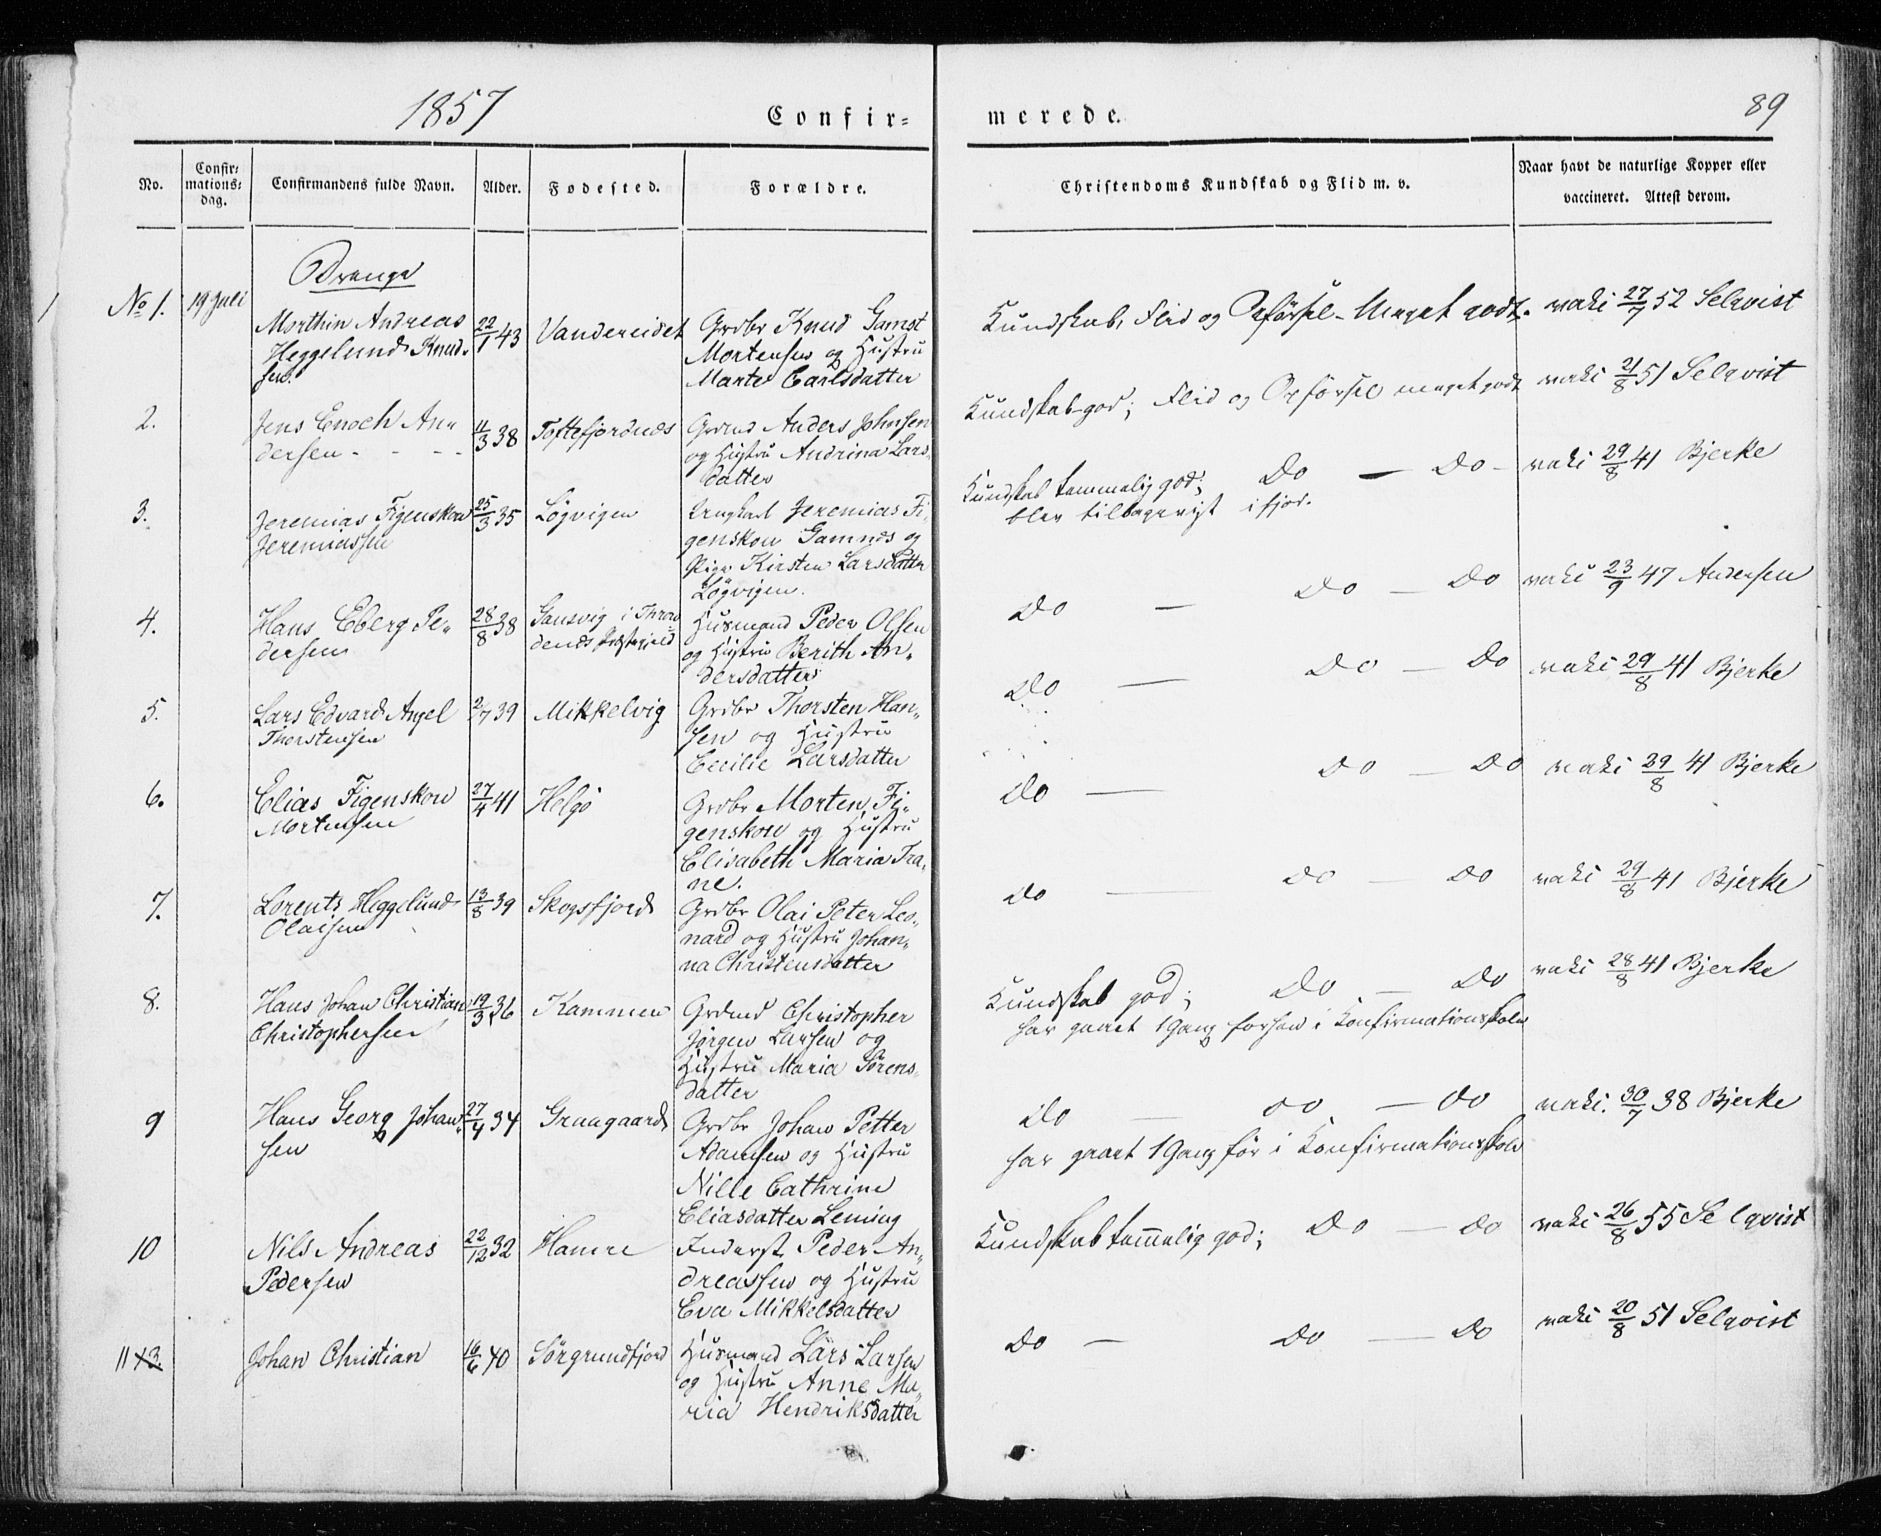 1857
Confir-
merede.
89
No.
Confir-
mations-
dag.
Confirmandens fulde Navn.
Alder.
Fødested.
Forældre.
Christendoms Kundskab og Flid m. v.
Naar havt de naturlige Kopper eller
vaccineret. Attest derom.
Drenge
No 1.
19 Juli
Morthin Andreas
Heggelund Knud-
sen.
22/1 43
Vandereidet
Grdbr Knud Gamst
Mortensen og Hustru
Marte Carlsdatter
Kundskab, Flid og Opførsel - Meget godt.
vaki 27/7 52 Selqvist
2.
Jens Enoch An-
dersen
11/3 38
Toftefjordnæs
Grdmd Anders Johnsen
og Hustru Andrina Lars-
datter
Kundskab god; Flid og Opførsel meget godt
vaki 21/8 51 Selqvist
3.
Jeremias Figenskou
Jeremiassen
25/3 35
Løgvigen
Ungkarl Jeremias Fi-
genskou Gamnæs og
Pige Kirsten Larsdatter
Løgvigen.
Kundskab temmelig god; Do - Do -
blev tilbagevist ifjor.
vaki 29/8 41 Bjerke
4.
Hans Eberg Pe-
dersen
28/8 38
Gausvig i Thron-
denæs Præstegjeld
Husmand Peder Olsen
og Hustru Berith An-
dersdatter
Do - Do - Do
vaki 23/9 47 Andersen
5.
Lars Edvard Angel
Thorstensen
2/7 39
Mikkelvig
Grdbr Thorsten Han-
sen og Hustru
Cecilie Larsdatter
Do - Do - Do
vaki 29/8 41 Bjerke
6.
Elias Figenskou
Mortensen
27/4 41
Helgø
Grdbr Morten Fi-
genskou og Hustru
Elisabeth Maria Tra-
ne.
Do - Do - Do
vaki 29/8 41 Bjerke
7.
Lorents Heggelund
Olaisen
13/8 39
Skogsfjord
Grdbr Olai Peter Leo-
nard og Hustru Johan-
na Christensdatter
Do - Do - Do
vaki 29/8 41 Bjerke
8.
Hans Johan Christian
Christophersen
19/3 36
Kammen
Grdmd Christopher
Jørgen Larsen og
Hustru Maria Sørens-
datter
Kundskab god; Do - Do
har gaaet 1 Gang forhen i Konfirmationsskole
vaki 28/8 41 Bjerke
9
Hans Georg Johan-
sen
27/4 34
Graagaard
Grdbr Johan Petter
Adamsen og Hustru
Nille Cathrine
Eliasdatter Leming
Do Do - Do
har gaaet 1 Gang før i Konfirmationsskole
vaki. 30/7 38 Bjerke
10
Nils Andreas
Pedersen
22/12 32
Hamre
Inderst Peder An-
dreassen og Hustru
Eva Mikkelsdatter
Kundskab temmelig god; Do - Do
vaki 26/8 55 Selqvist
11
Johan Christian
16/6 40
Sørgrundfjord
Husmand Lars Larsen
og Hustru Anne Ma-
ria Hendriksdatter
Do - Do - Do
vaki 20/8 51 Selqvist